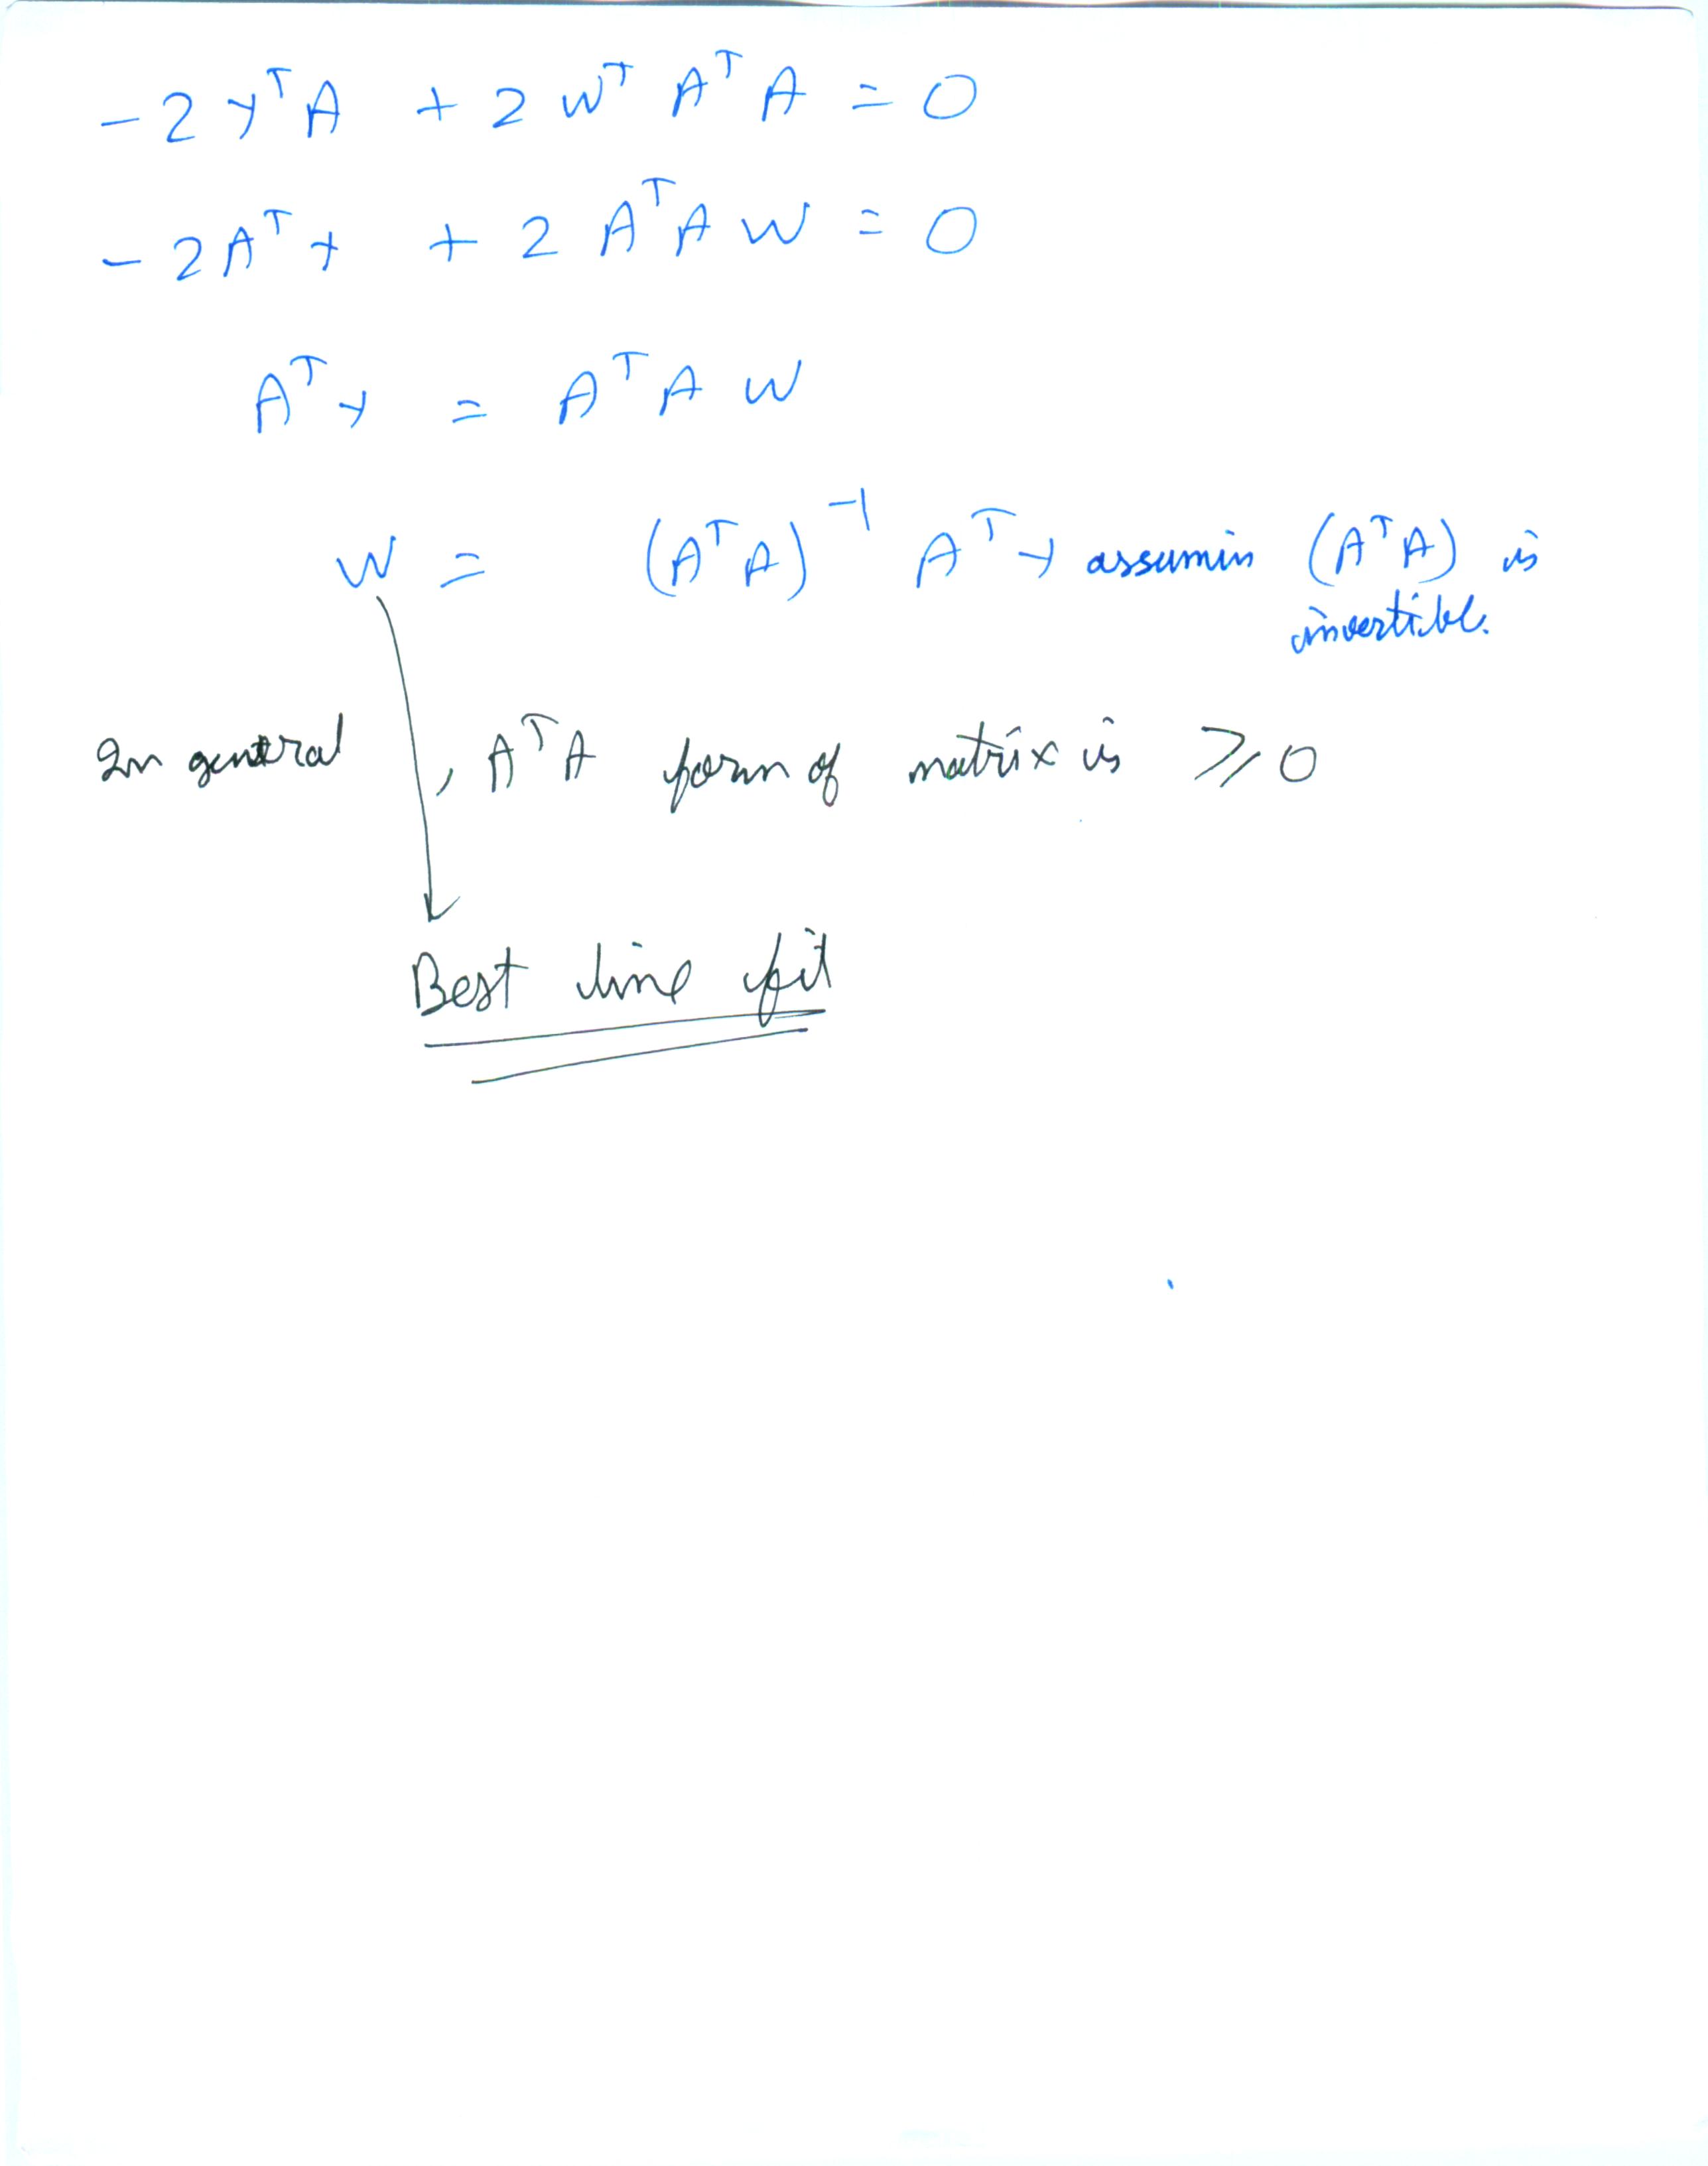 -2 y^T A + 2 W^T A^T A = 0
-2 A^T y + 2 A^T A W = 0
A^T y = A^T A W
W = (A^T A)^-1 A^T y assumin (A^T A) is
invertible.
In general, A^T A form of matrix is ≥ 0
Best line fit